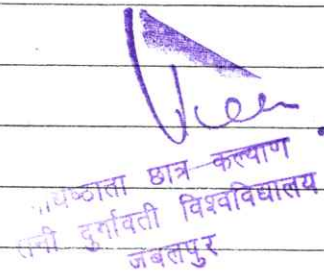 छात्र कल्याण
रानी दुर्गावती विश्वविद्यालय
जबलपुर